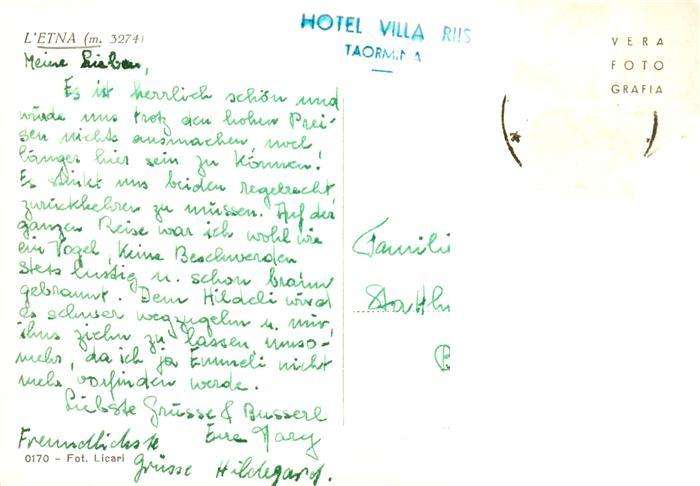 L'ETNA (m. 3274)
HOTEL VILLA RIIS
TAORMINA
VERA
FOTO
GRAFIA
Meine Lieben,
Es ist herrlich schön und
würde uns trotz den hohen Prei-
sen nichts ausmachen, noch
länger hier sein zu können!
Es stinkt uns beiden regelrecht
zurückkehren zu müssen. Auf der
ganzen Reise war ich wohl wie
ein Vogel, keine Beschwerden
stets lustig u. schon braun
gebrannt. Dem Hildeli würd
es schwer wegzugehn u. mir,
ihns ziehn zu lassen umso-
mehr, da ich ja Emmeli nicht
mehr vorfinden werde.
Liebste Grüsse & Busserl
Eure
Freundlichste
Grüsse Hildegard.
0170 - Fot. Licari
Familie